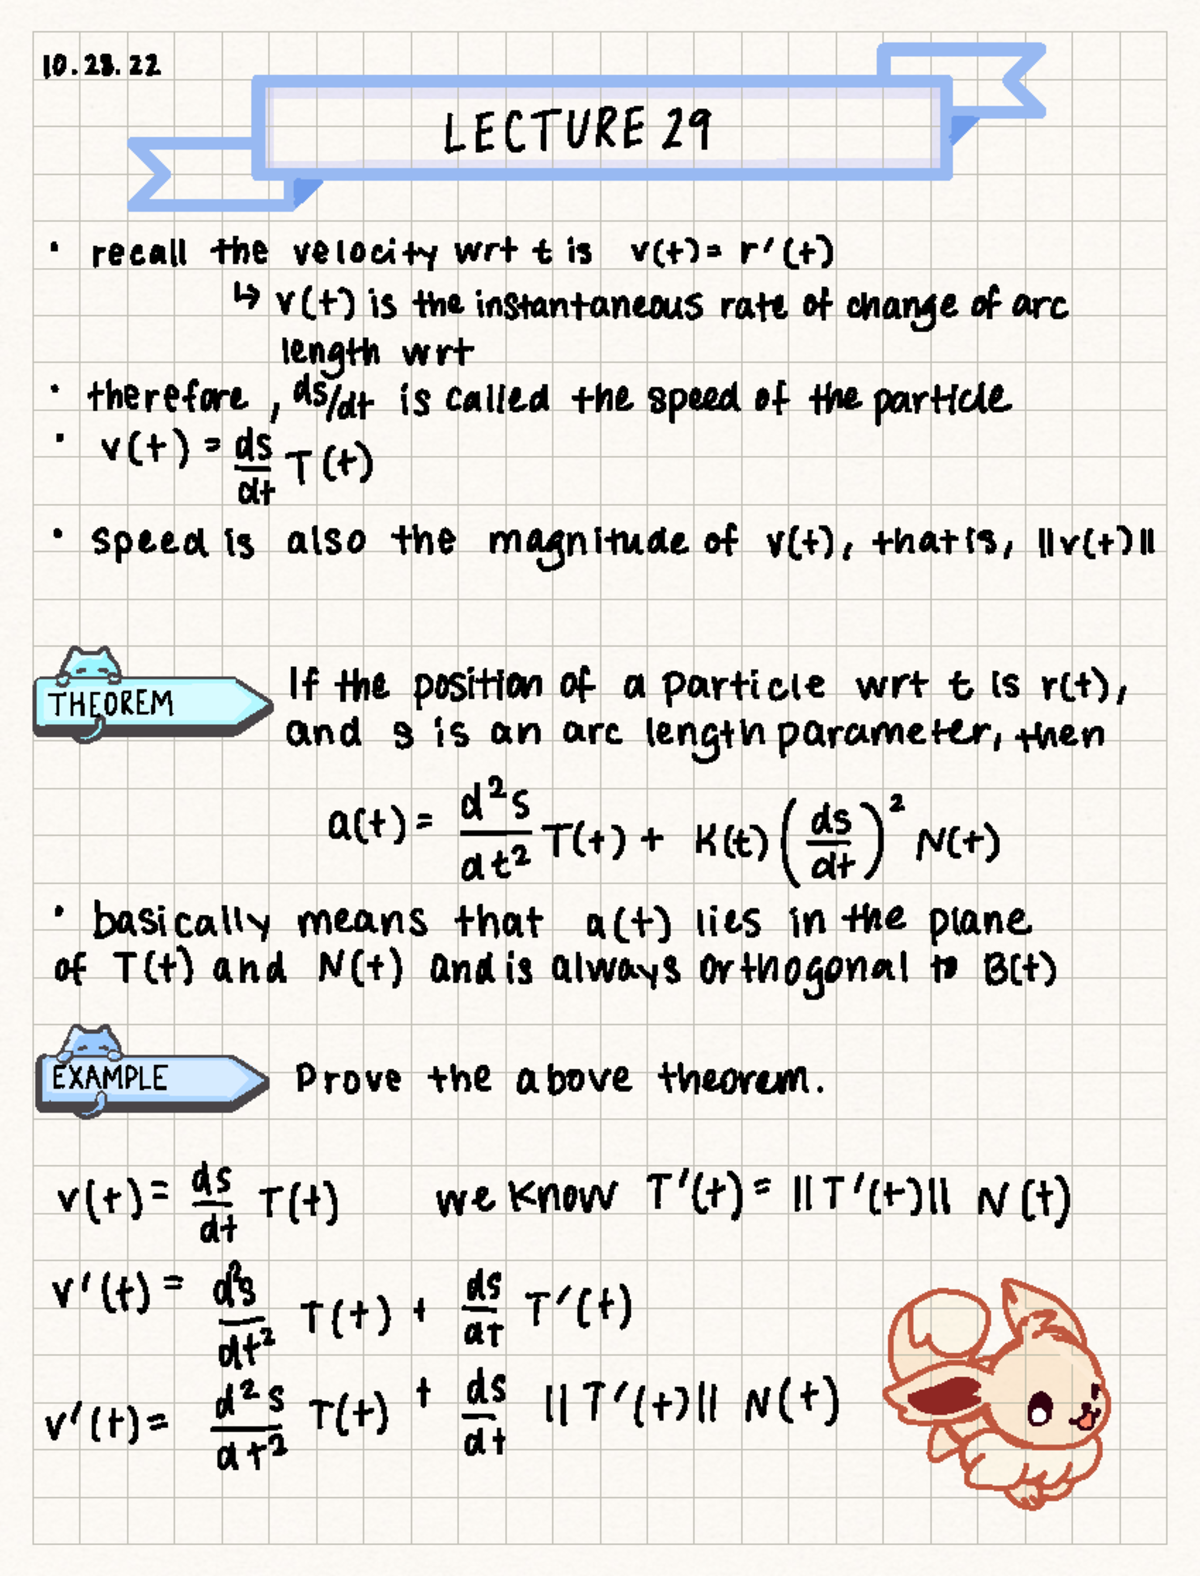 10.28.22
LECTURE 29
• recall the velocity wrt t is v(t) = r'(t)
↳ v(t) is the instantaneous rate of change of arc
length wrt
• therefore, ds/dt is called the speed of the particle
• v(t) = ds/dt T(t)
• speed is also the magnitude of v(t), that is, ||v(t)||
THEOREM
If the position of a particle wrt t is r(t),
and s is an arc length parameter, then
a(t) = d²s/dt² T(t) + K(t) (ds/dt)² N(t)
• basically means that a(t) lies in the plane
of T(t) and N(t) and is always orthogonal to B(t)
EXAMPLE
Prove the above theorem.
v(t) = ds/dt T(t) we know T'(t) = ||T'(t)|| N(t)
v'(t) = d²s/dt² T(t) + ds/dt T'(t)
v'(t) = d²s/dt² T(t) + ds/dt ||T'(t)|| N(t)